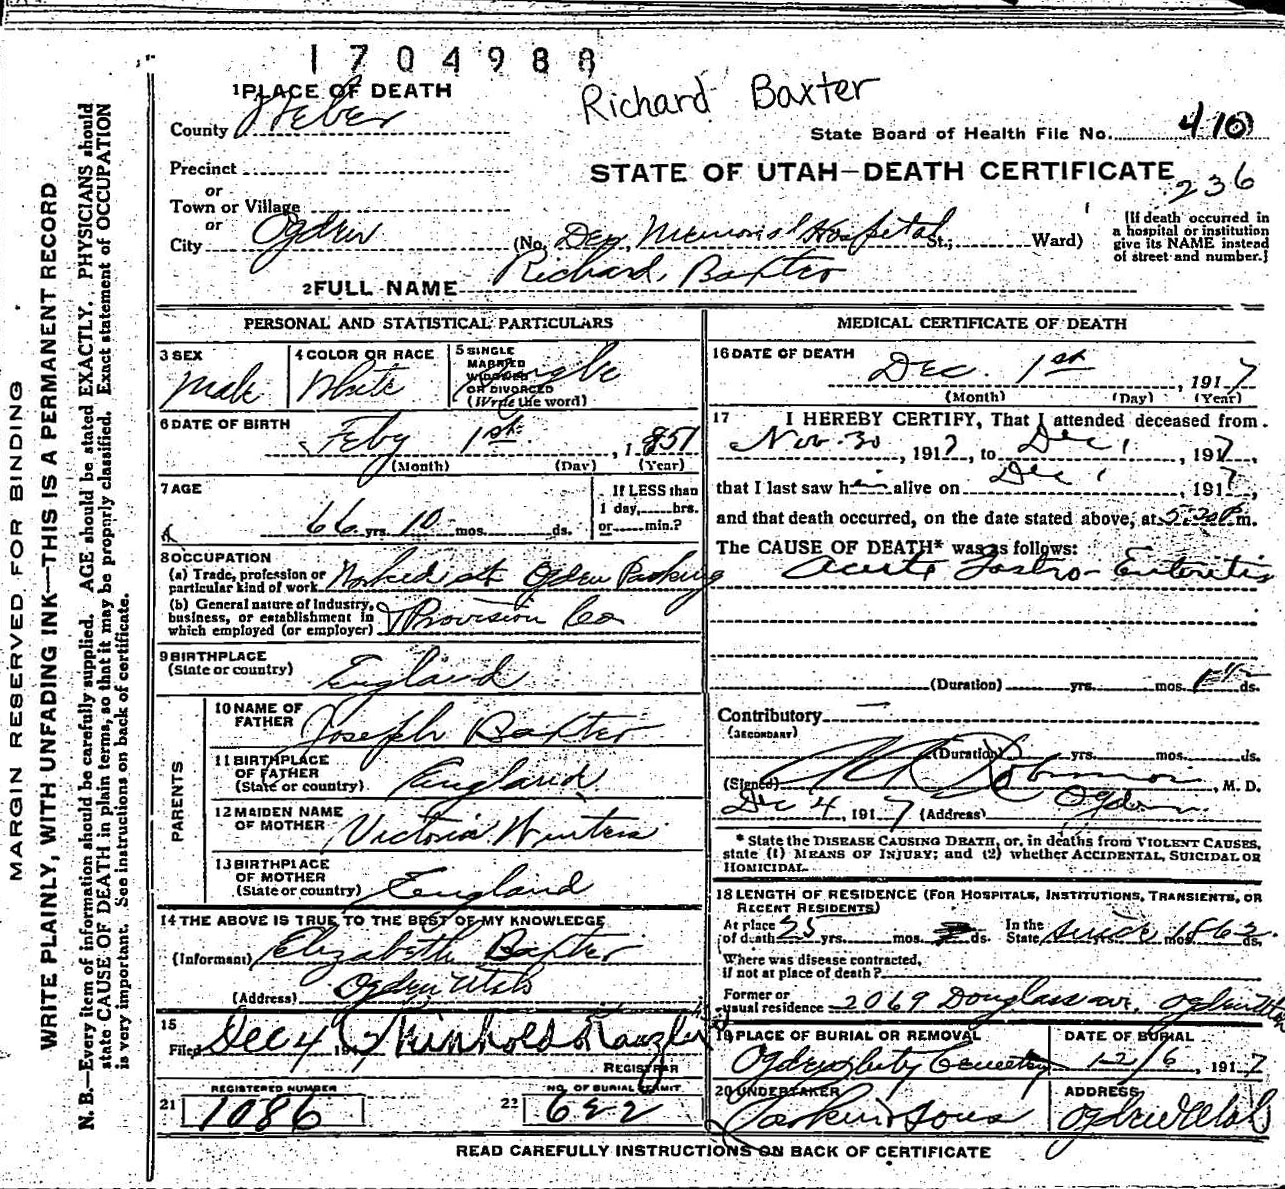 1704988
Richard Baxter
1 PLACE OF DEATH
County Weber
State Board of Health File No. 410
Precinct
or
Town or Village
or
STATE OF UTAH—DEATH CERTIFICATE
236
City Ogden (No. Dee Memorial Hospital St.; Ward)
(If death occurred in a hospital or institution give its NAME instead of street and number.)
2 FULL NAME Richard Baxter
PERSONAL AND STATISTICAL PARTICULARS
3 SEX
Male
4 COLOR OR RACE
White
5 SINGLE
MARRIED
WIDOWED
OR DIVORCED
(Write the word)
Single
6 DATE OF BIRTH
Feby 1st, 1851
(Month) (Day) (Year)
7 AGE
66 yrs. 10 mos. ds.
If LESS than
1 day, hrs.
or min.?
8 OCCUPATION
(a) Trade, profession or
particular kind of work Worked at Ogden Packing
(b) General nature of industry,
business, or establishment in
which employed (or employer) & Provision Co
9 BIRTHPLACE
(State or country) England
PARENTS
10 NAME OF
FATHER Joseph Baxter
11 BIRTHPLACE
OF FATHER
(State or country) England
12 MAIDEN NAME
OF MOTHER Victoria Winters
13 BIRTHPLACE
OF MOTHER
(State or country) England
14 THE ABOVE IS TRUE TO THE BEST OF MY KNOWLEDGE
(Informant) Elizabeth Baxter
(Address) Ogden Utah
15
Filed Dec 4 191
REGISTRAR
21 REGISTERED NUMBER
1086
22 NO. OF BURIAL PERMIT
622
MEDICAL CERTIFICATE OF DEATH
16 DATE OF DEATH
Dec. 1st, 1917
(Month) (Day) (Year)
17 I HEREBY CERTIFY, That I attended deceased from
Nov. 30, 1917, to Dec 1, 1917,
that I last saw him alive on Dec 1, 1917,
and that death occurred, on the date stated above, at 5:20 P. m.
The CAUSE OF DEATH* was as follows:
Acute Gastro-Enteritis
(Duration) yrs. mos. ds.
Contributory
(SECONDARY)
(Duration) yrs. mos. ds.
(Signed) Robinson, M. D.
Dec 4, 1917 (Address) Ogden
* State the DISEASE CAUSING DEATH, or, in deaths from VIOLENT CAUSES,
state (1) MEANS OF INJURY; and (2) whether ACCIDENTAL, SUICIDAL OR
HOMICIDAL.
18 LENGTH OF RESIDENCE (FOR HOSPITALS, INSTITUTIONS, TRANSIENTS, OR
RECENT RESIDENTS)
At place
of death 25 yrs. mos. ds. In the
State since 1862 yrs. mos. ds.
Where was disease contracted,
if not at place of death?
Former or
usual residence 2069 Douglass ave. Ogden Utah
19 PLACE OF BURIAL OR REMOVAL
Ogden City Cemetery
DATE OF BURIAL
12/6, 1917
20 UNDERTAKER
Larkin & Sons
ADDRESS
Ogden Utah
READ CAREFULLY INSTRUCTIONS ON BACK OF CERTIFICATE
MARGIN RESERVED FOR BINDING
WRITE PLAINLY, WITH UNFADING INK—THIS IS A PERMANENT RECORD
N. B.—Every item of information should be carefully supplied. AGE should be stated EXACTLY. PHYSICIANS should
state CAUSE OF DEATH in plain terms, so that it may be properly classified. Exact statement of OCCUPATION
is very important. See instructions on back of certificate.